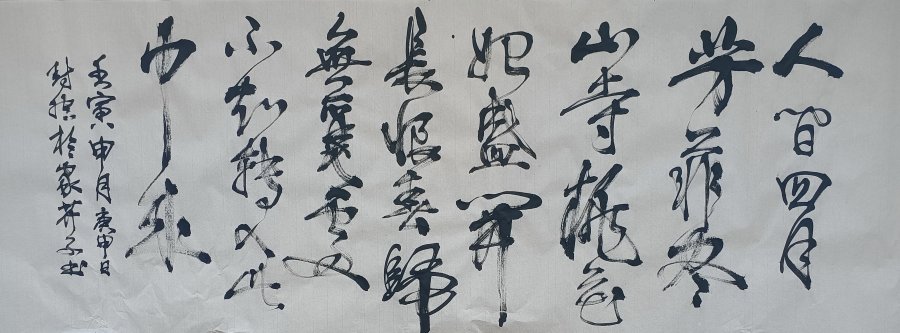 人間四月
芳菲尽
山寺桃花
始盛開
長恨春歸
無覓處
不知轉入此
中来
壬寅申月庚申日
封控於家芥子书